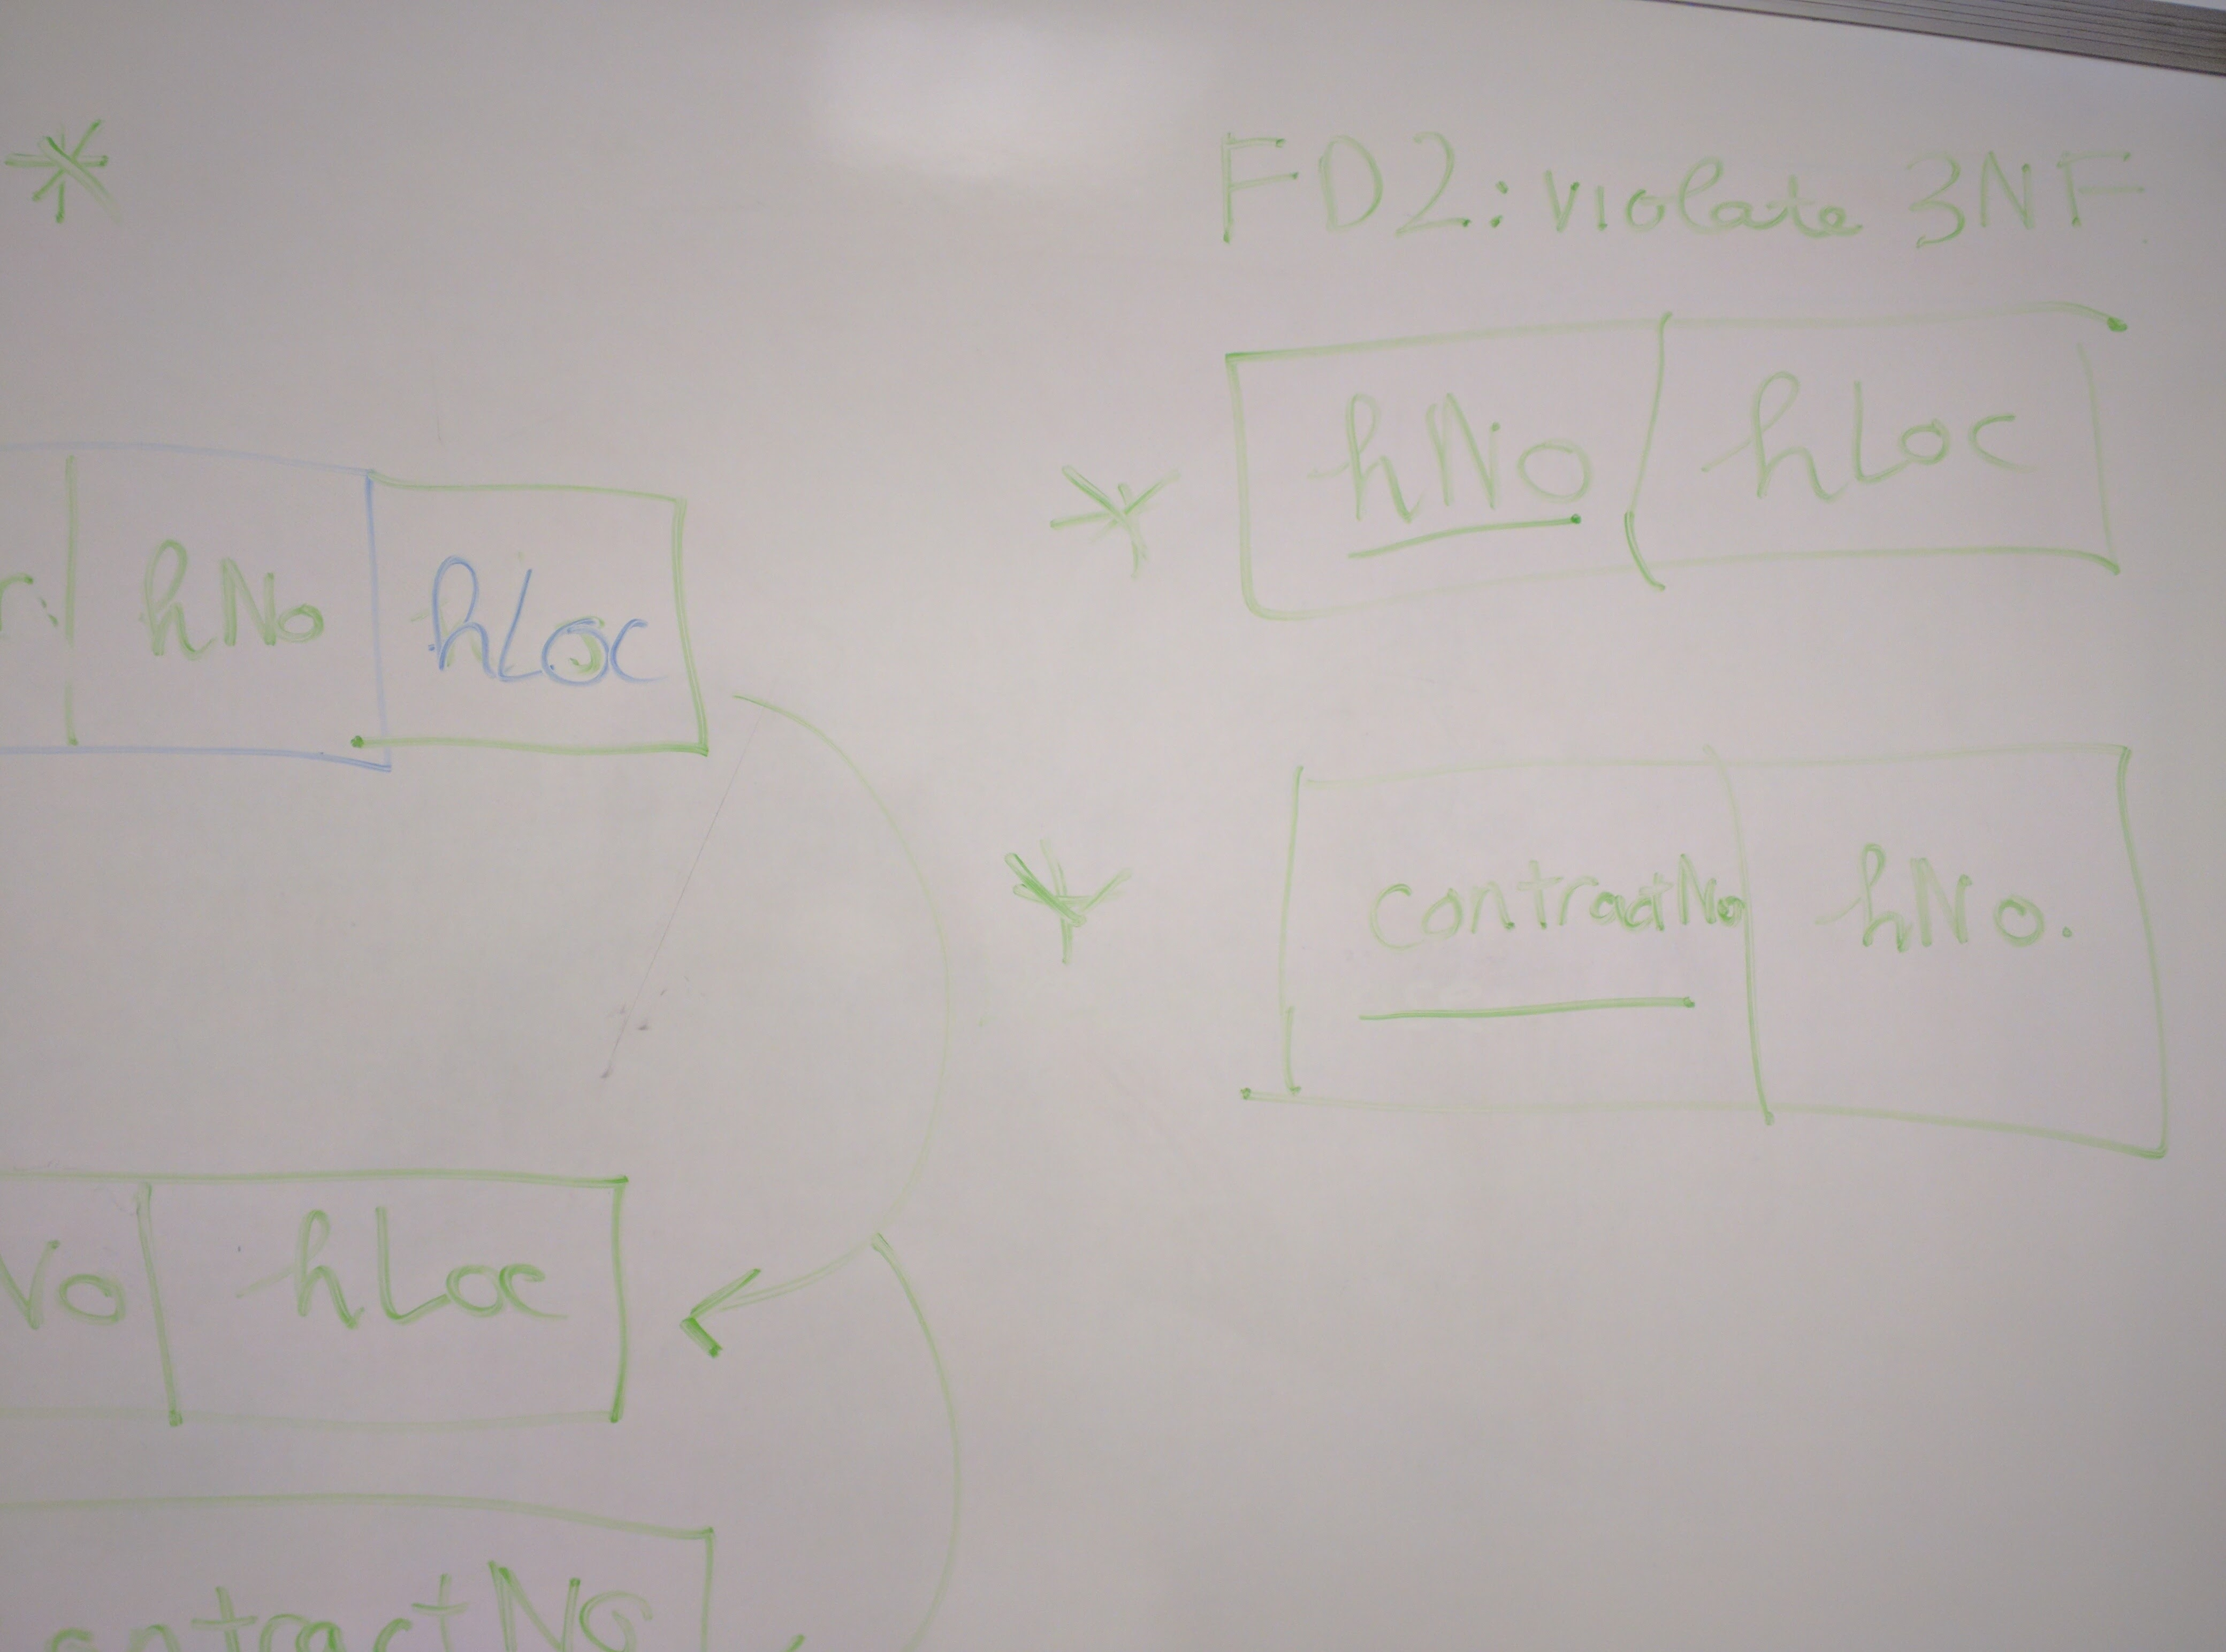 *
FD2: violate 3NF
* hNo hLoc
hNo hLoc
* contractNo hNo.
No hLoc
ontractNo